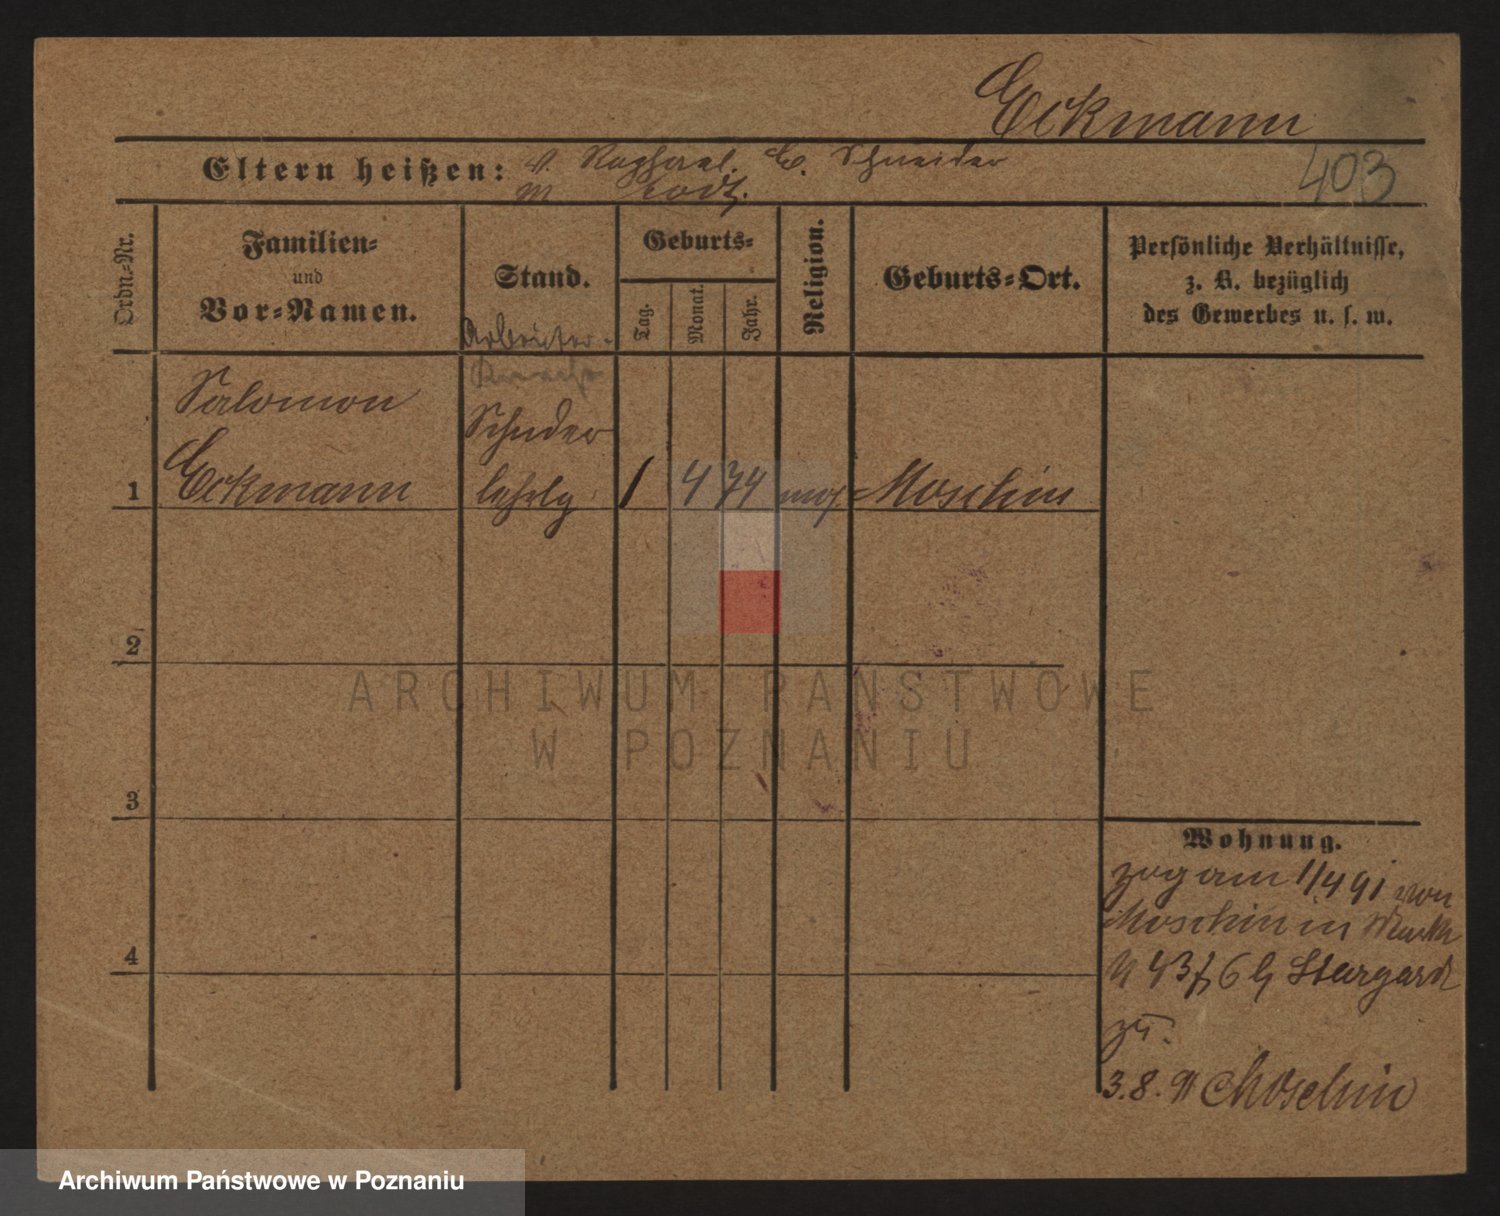 Eckmann
403
Eltern heißen: V. Raphael. E. Schneider
M
Ordn=Nr.
Familien=
und
Vor=Namen.
Stand.
Geburts=
Tag.
Monat.
Jahr.
Religion.
Geburts=Ort.
Persönliche Verhältnisse,
z. B. bezüglich
des Gewerbes u. s. w.
Arbeiter
Salomon
Schnder
1 Eckmann lehrlg 1 4 74 mos Moschin
2
3
4
Wohnung.
zog am 1/4 91 von
Moschin in
43/6 b Stargardt
zu.
3.8.91 Moschin
ARCHIWUM PAŃSTWOWE
W POZNANIU
Archiwum Państwowe w Poznaniu